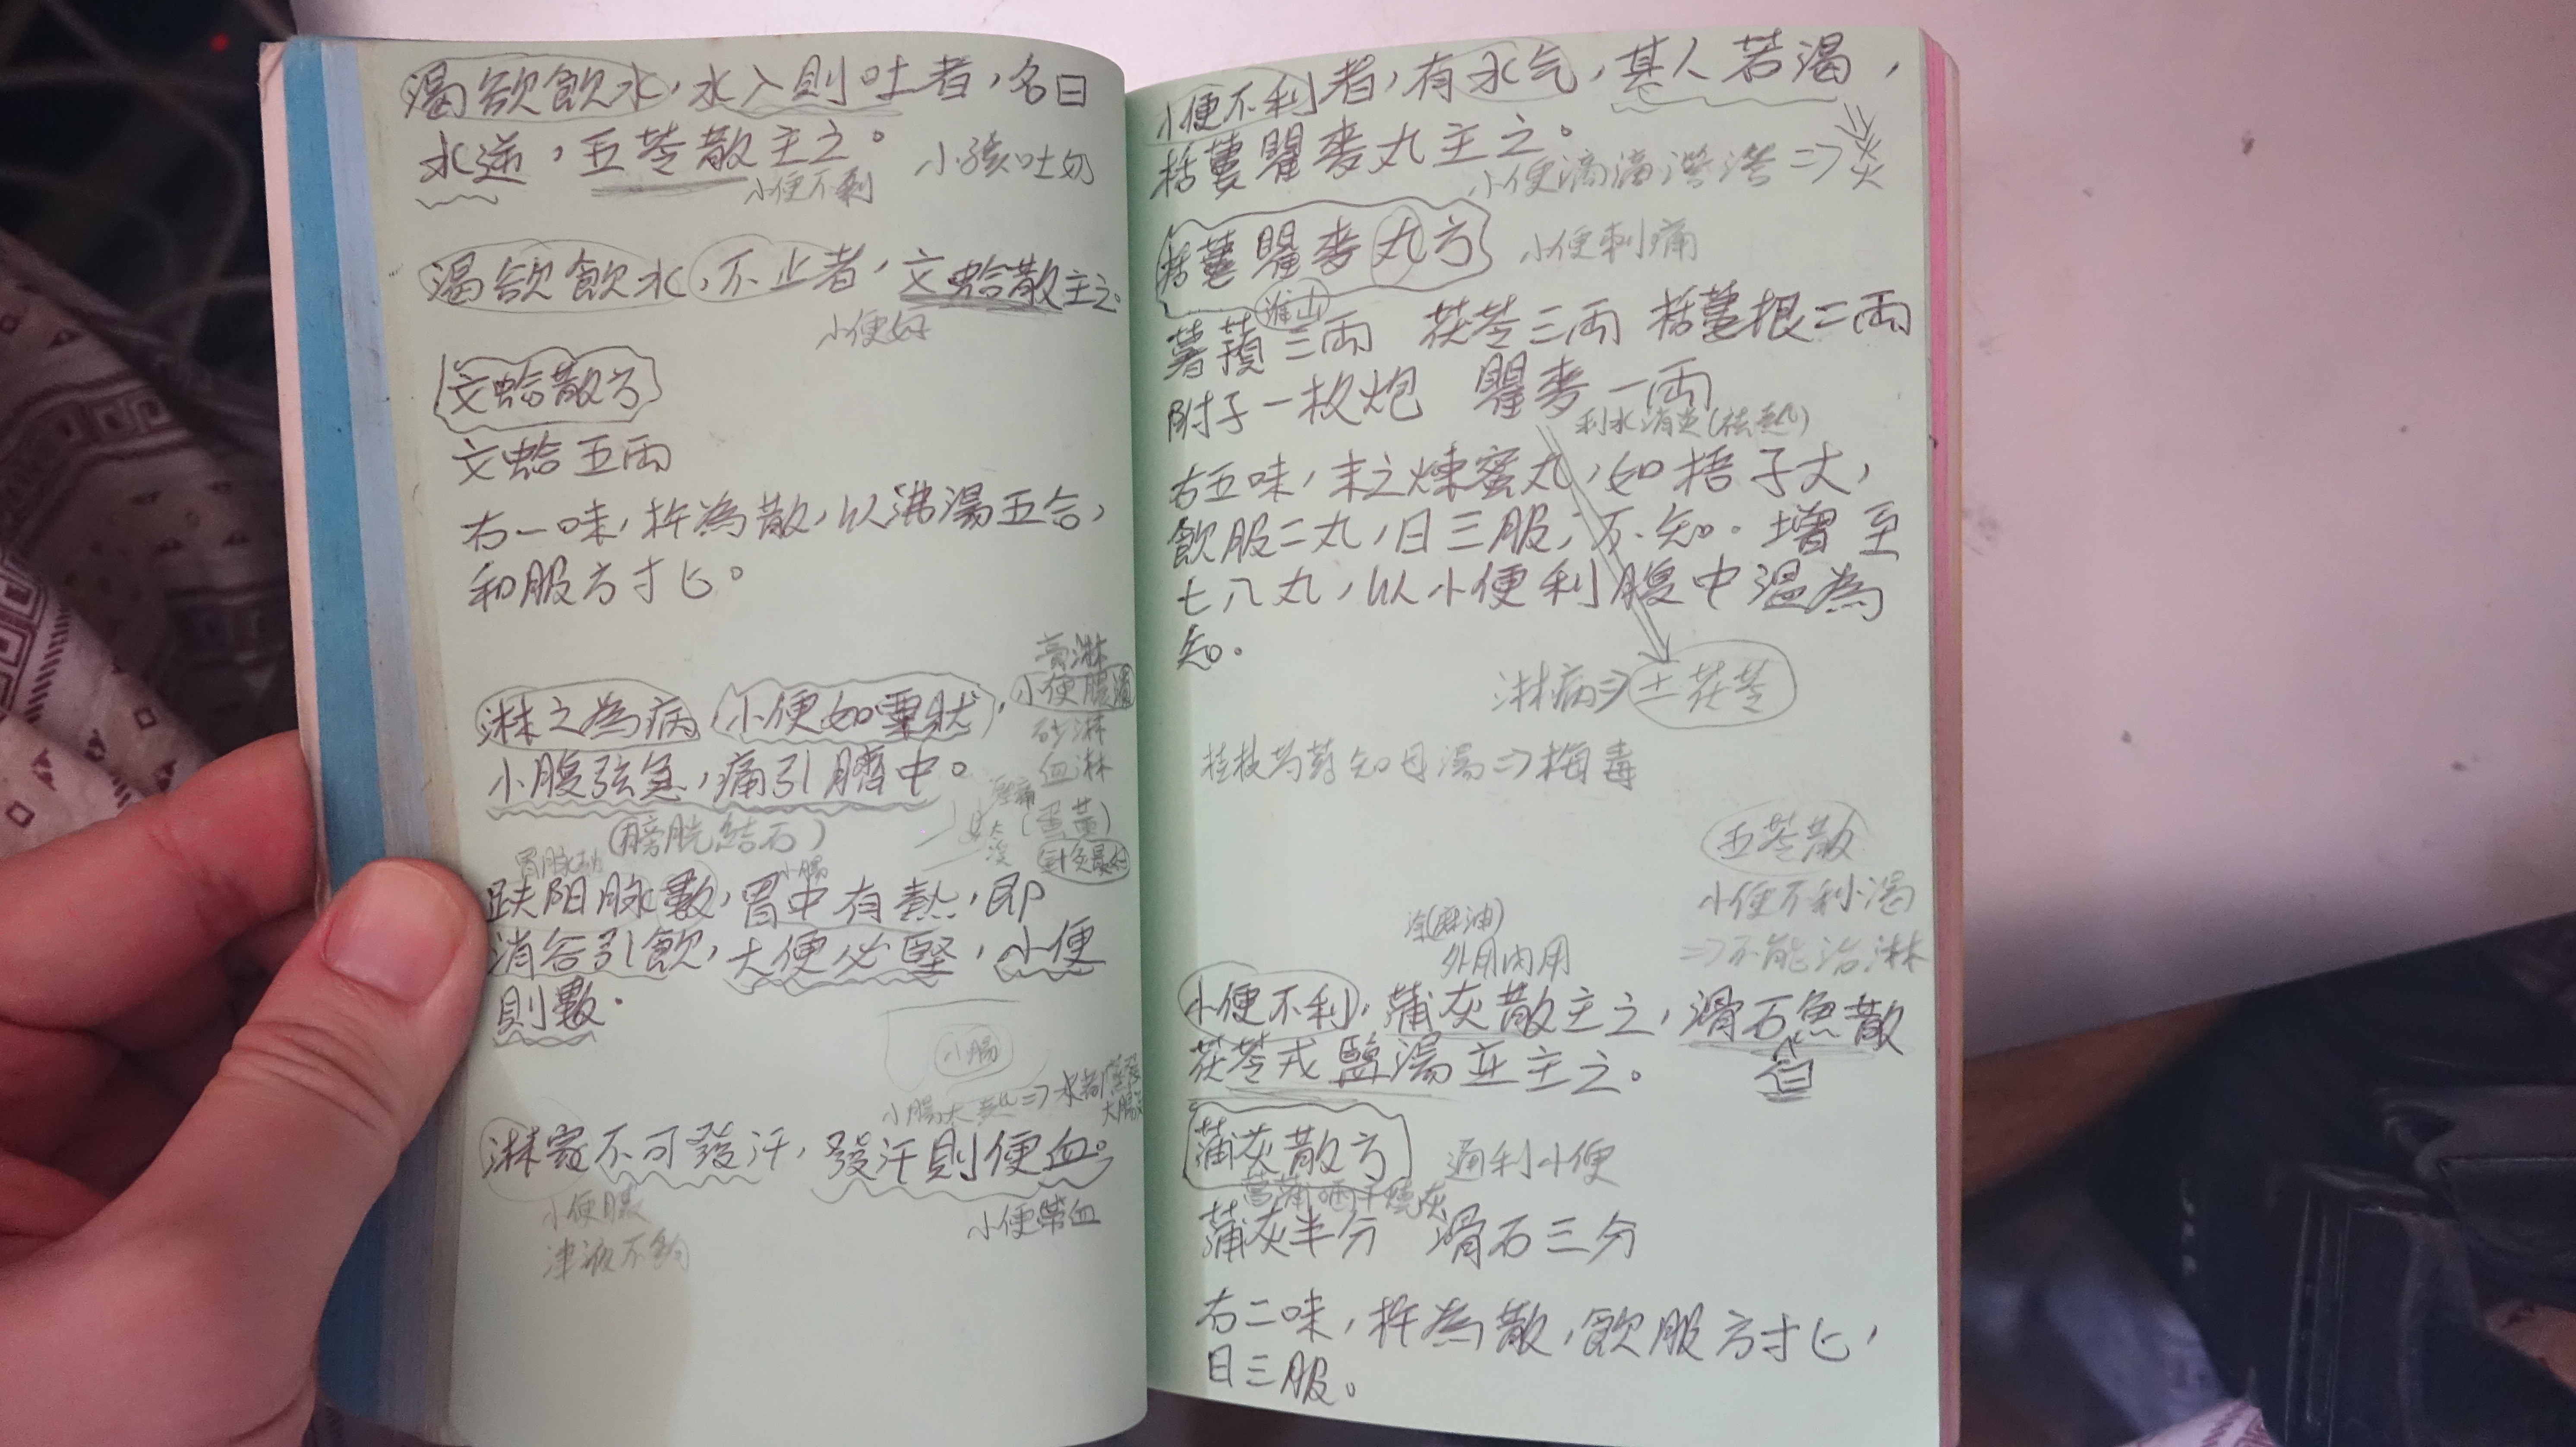 渴欲飲水，水入則吐者，名曰
水逆，五苓散主之。
小便不利
小孩吐奶
渴欲飲水，不止者，文蛤散主之。
小便好
文蛤散方
文蛤五兩
右一味，杵為散，以沸湯五合，
和服方寸匕。
膏淋
小便膿濁
砂淋
血淋
淋之為病，小便如粟狀，
小腹弦急，痛引臍中。
(膀胱結石)
(蛋黃)
小腸
趺阳脉數，胃中有熱，即
消谷引飲，大便必堅，小便
則數．
小腸
小腸太熱⇒水
淋家不可發汗，發汗則便血。
小便膿
津液不夠
小便帶血
小便不利者，有水气，其人若渴，
栝蔞瞿麥丸主之。
小便滴滴澀澀⇒炎
栝蔞瞿麥丸方
小便刺痛
淮山
薯蕷三兩 茯苓三兩 栝蔞根二兩
附子一枚炮 瞿麥一兩
利水消炎(祛熱)
右五味，末之煉蜜丸，如梧子大，
飲服二丸，日三服，不知．增至
七八丸，以小便利腹中溫為
知．
淋病⇒土茯苓
桂枝芍药知母湯⇒梅毒
五苓散
小便不利小渴
⇒不能治淋
涂(麻油)
外用內用
小便不利，蒲灰散主之，滑石魚散
白
茯苓戎鹽湯並主之。
蒲灰散方
通利小便
菖蒲晒干燒灰
蒲灰半分 滑石三分
右二味，杵為散，飲服方寸匕，
日三服。